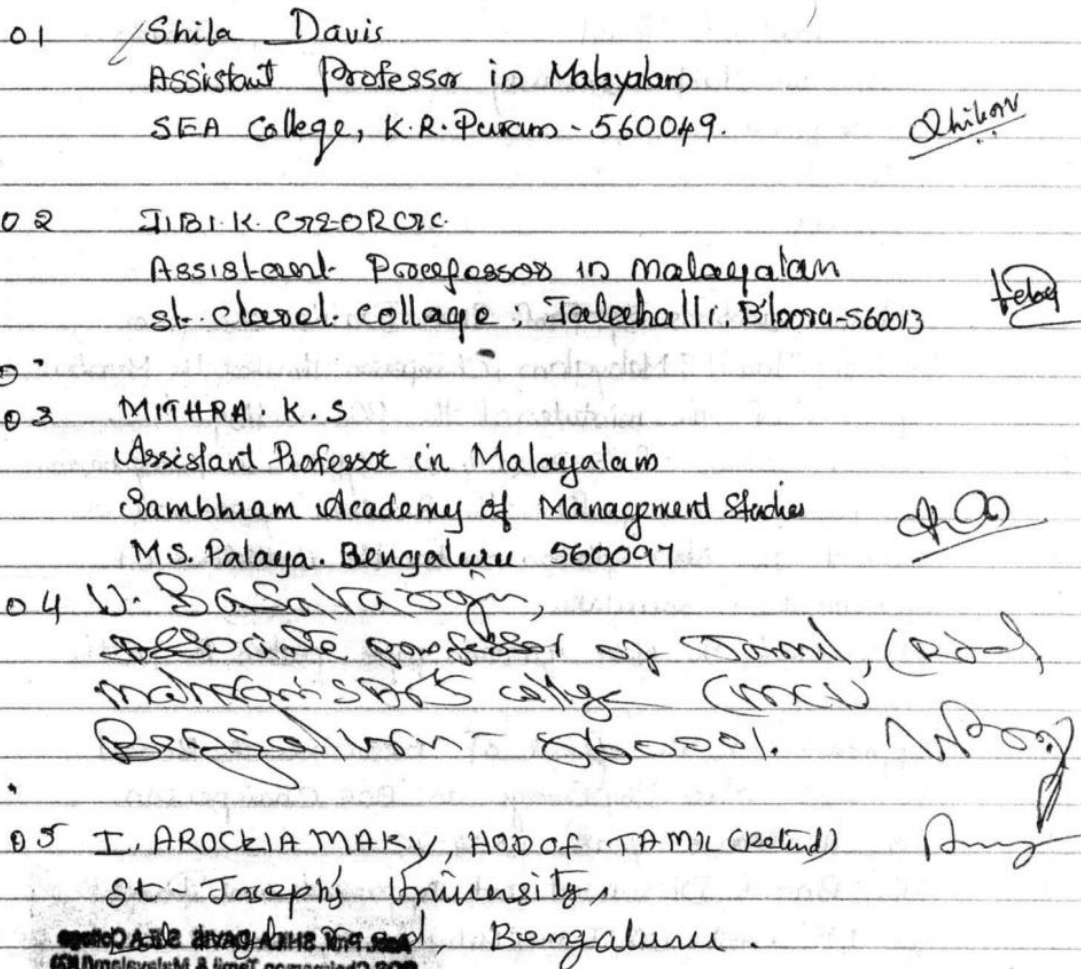 01 Shila Davis
Assistant Professor in Malayalam
SEA College, K.R. Puram - 560049.
02 JIBI. K. GEORGE.
Assistant Proefessor in malayalam
st. claret. collage, Jalahalli, B'loora-560013
03 MITHRA. K. S
Assistant Professor in Malayalam
Sambhram Academy of Management Studies
M.S. Palaya. Bengaluru 560097
04 V.
Associate professor of Tamil, (Rtd)
college (mcu)
Bengaluru - 560001.
05 I. AROCKIA MARY, HOD of TAMIL (Retired)
St - Joseph's University,
Bengaluru.